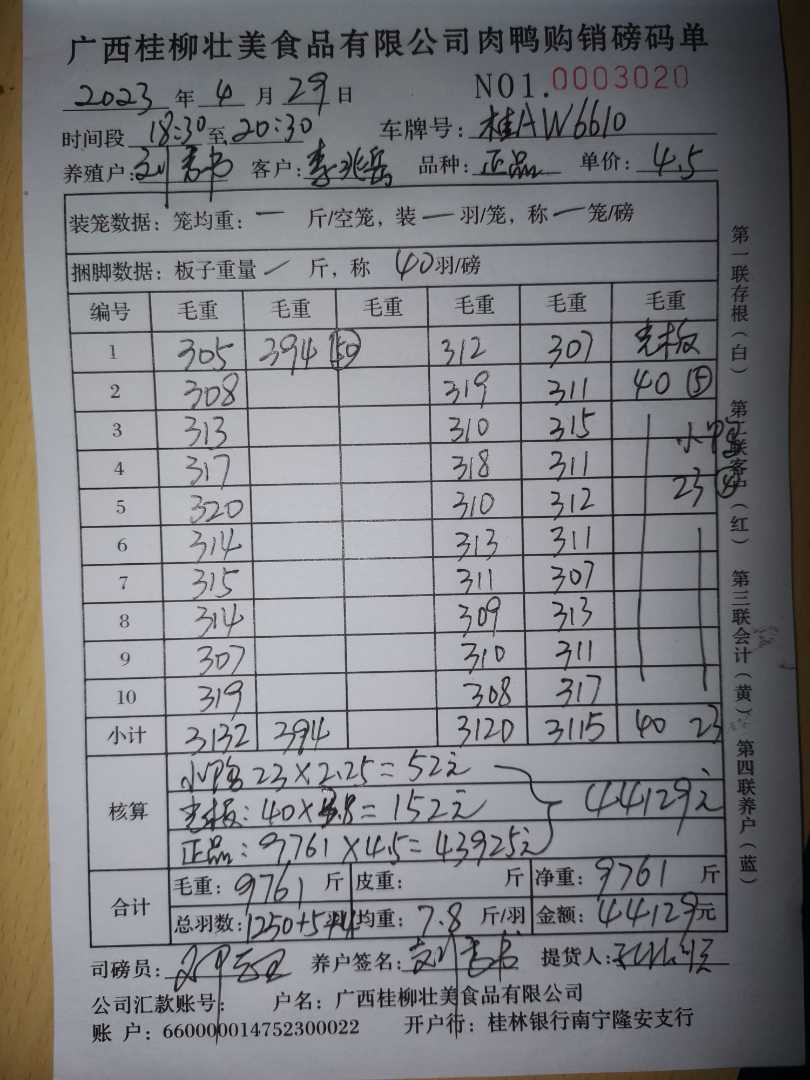 广西桂柳壮美食品有限公司肉鸭购销磅码单
2023 年 4 月 29 日 NO1.0003020
时间段 18:30 至 20:30 车牌号: 桂AW6610
养殖户: 客户: 李兆岳 品种: 正品 单价: 4.5
装笼数据: 笼均重: 一 斤/空笼, 装 一 羽/笼, 称 一 笼/磅
捆脚数据: 板子重量 一 斤, 称 40 羽/磅
编号 毛重 毛重 毛重 毛重 毛重 毛重
1 305 394 (50) 312 307 光板
2 308 319 311 40 (5)
3 313 310 315 小鸭
4 317 318 311
5 320 310 312 23 (4)
6 314 313 311
7 315 311 307
8 314 309 313
9 307 310 311
10 319 308 317
小计 3132 394 3120 3115 40 23
核算
小鸭 23×2.25=52元
光板: 40×3.8=152元
正品: 9761×4.5=43925元
44129元
合计
毛重: 9761 斤 皮重: 斤 净重: 9761 斤
总羽数: 1250+5+4 均重: 7.8 斤/羽 金额: 44129元
司磅员: 养户签名: 提货人:
公司汇款账号: 户名: 广西桂柳壮美食品有限公司
账 户: 660000014752300022 开户行: 桂林银行南宁隆安支行
第一联存根(白) 第二联客户(红) 第三联会计(黄) 第四联养户(蓝)